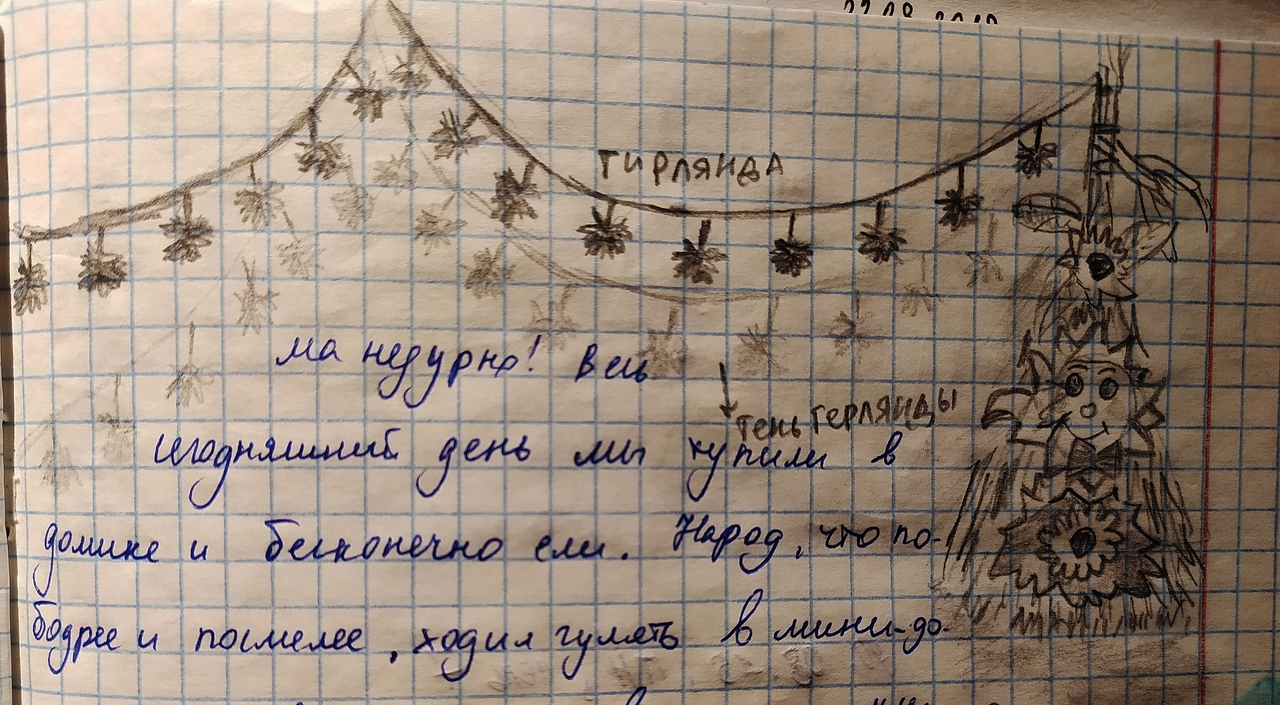 ГИРЛЯНДА
ма недурно! Весь
тень герлянды
сегодняшний день мы купили в
домике и бесконечно ели. Народ, что по-
бодрее и посмелее, ходил гулять в мини-до-